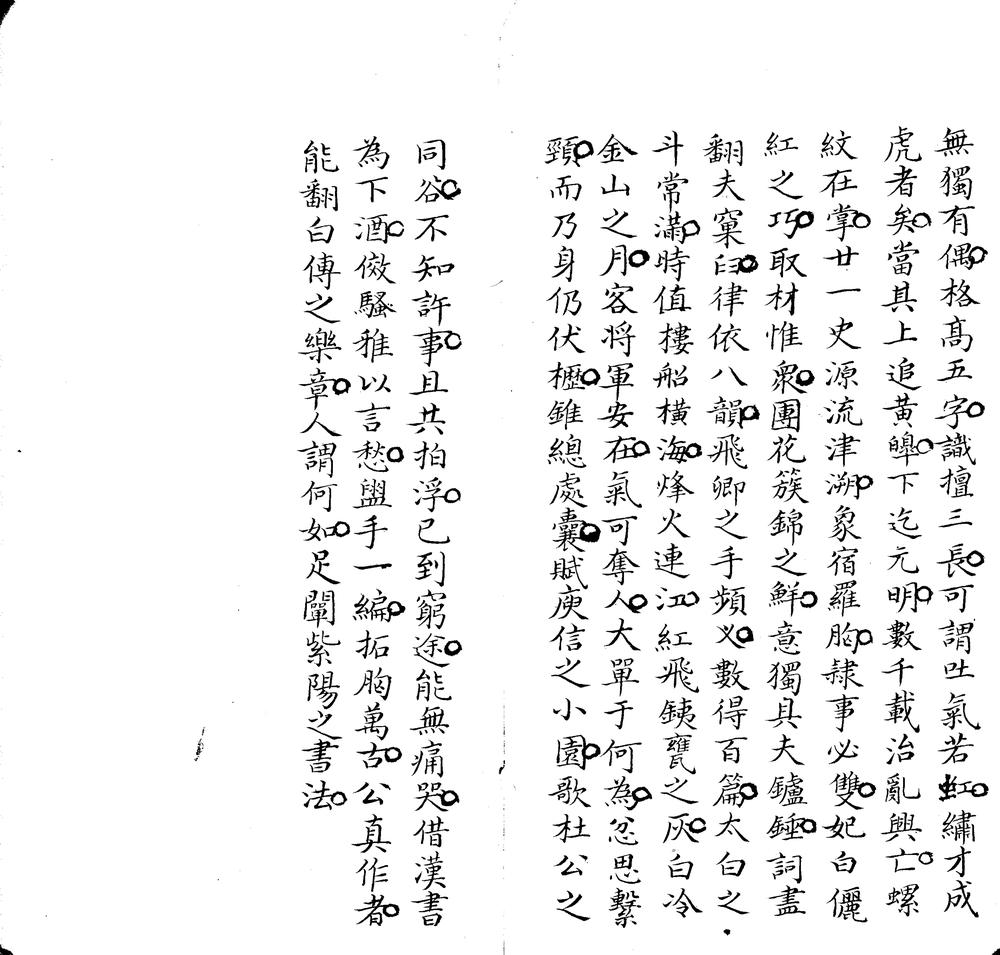 無獨有偶格高五字識擅三長可謂吐氣若虹繡才成
虎者矣當其上追黃皞下迄元明數千載治亂興亡螺
紋在掌廿一史源流津溯象宿羅胸隸事必雙妃白儷
紅之巧取材惟衆團花簇錦之鮮意獨具夫鑪錘詞盡
翻夫窠臼律依八韻飛卿之手頻叉數得百篇太白之
斗常滿時值樓船橫海烽火連江紅飛銕甕之灰白冷
金山之月客將軍安在氣可奪人大單于何為忿思繫
頸而乃身仍伏櫪錐總處囊賦庾信之小園歌杜公之
同谷不知許事且共拍浮已到窮途能無痛哭借漢書
為下酒傚騷雅以言愁盥手一編拓胸萬古公真作者
能翻白傅之樂章人謂何如足闡紫陽之書法